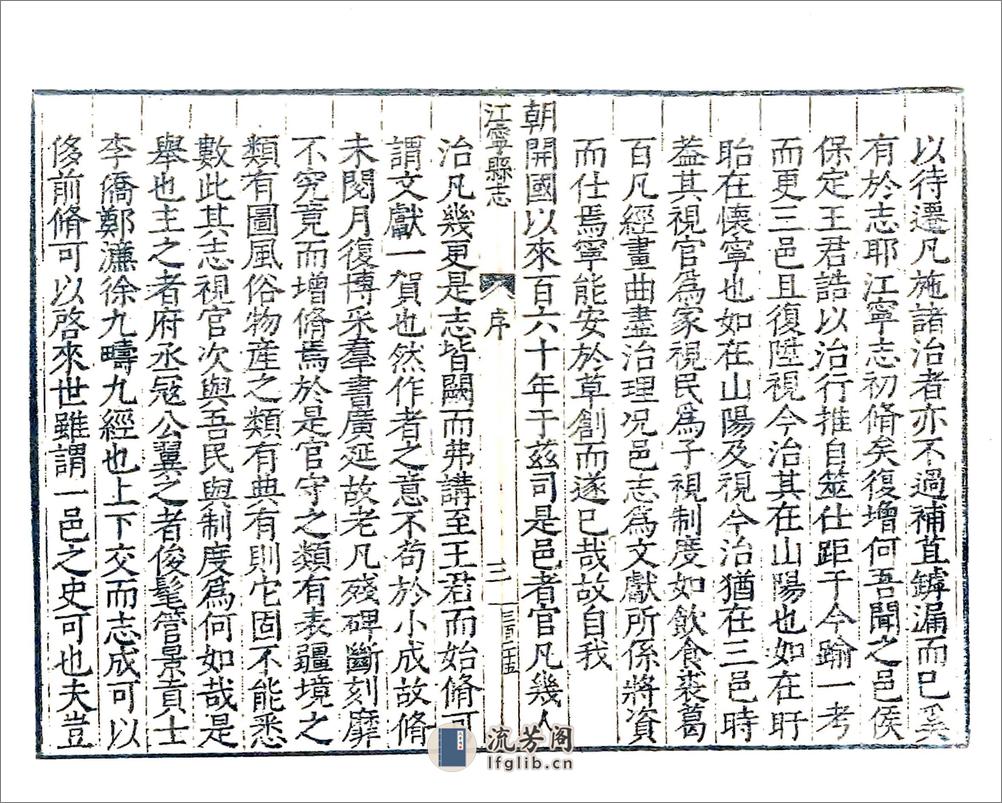 以待遷凡施諸治者亦不過補苴罅漏而已奚
有於志耶江寧志初脩矣復增何吾聞之邑侯
保定王君誥以治行推自筮仕距于今踰一考
而更三邑且復陞視今治其在山陽也如在盱
眙在懷寧也如在山陽及視今治猶在三邑時
葢其視官爲家視民爲子視制度如飲食裘葛
百凡經畫曲盡治理况邑志爲文獻所係將資
而仕焉寧能安於草創而遂已哉故自我
朝開國以來百六十年于兹司是邑者官凡幾人
江寧縣志
序
三
治凡幾更是志皆闕而弗講至王君而始脩可
謂文獻一賀也然作者之意不苟於小成故脩
未閱月復博采羣書廣延故老凡殘碑斷刻靡
不究竟而增脩焉於是官守之類有表疆境之
類有圖風俗物産之類有典有則它固不能悉
數此其志視官次與吾民與制度爲何如哉是
舉也主之者府丞冦公翼之者俊髦管景貢士
李僑鄭濂徐九疇九經也上下交而志成可以
侈前脩可以啓來世雖謂一邑之史可也夫豈
流芳阁
lfglib.cn